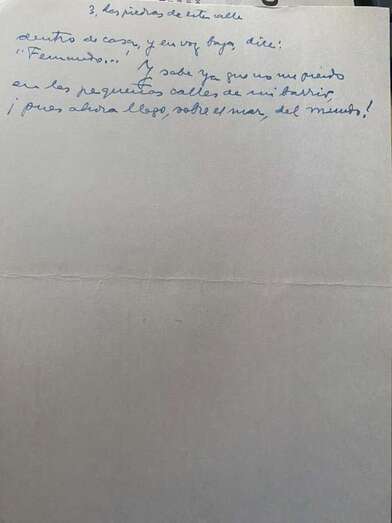 3, Las piedras de esta calle
dentro de casa, y en voz baja, dice:
"Fernando..." Y sabe ya que no me pierdo
en las pequeñas calles de mi barrio,
¡pues ahora llego, sobre el mar, del mundo!